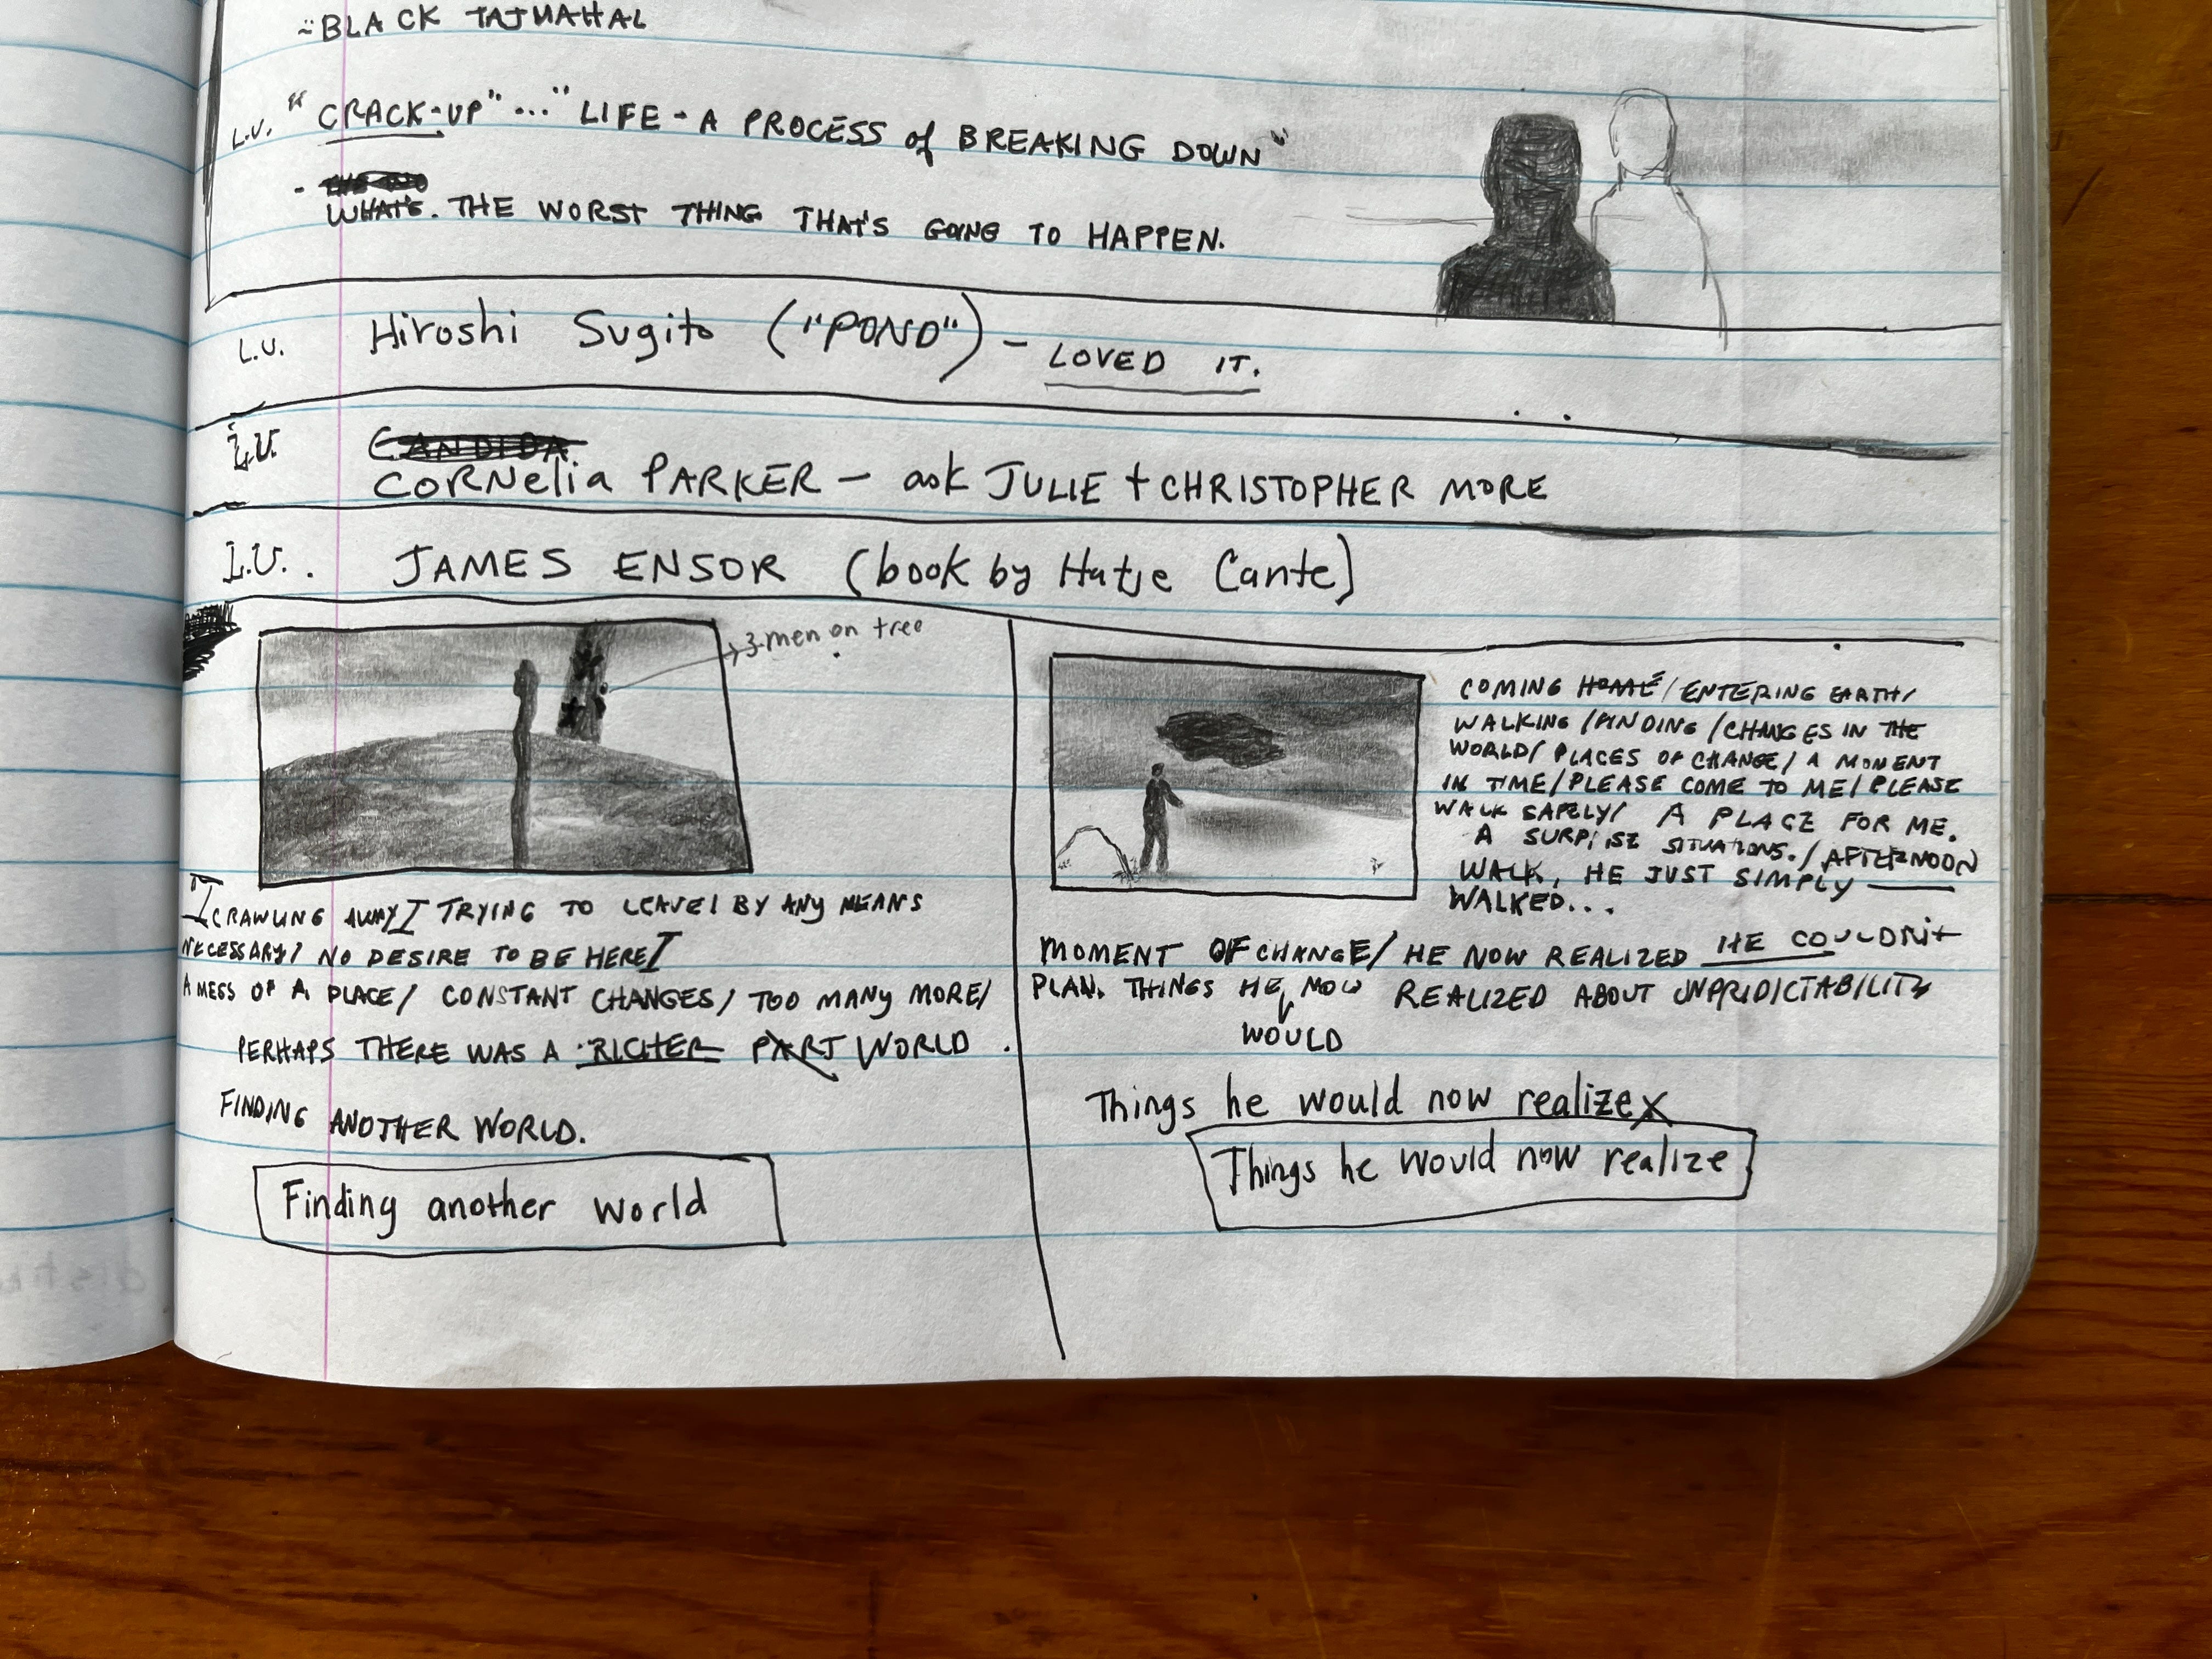 BLACK TAJMAHAL
L.V. "CRACK-UP"..." LIFE - A PROCESS of BREAKING DOWN"
- WHAT'S. THE WORST THING THAT'S GOING TO HAPPEN.
L.V. Hiroshi Sugito ("POND") - LOVED IT.
CANDIDA
L.V. CORNelia PARKER - ask JULIE + CHRISTOPHER MORE
L.V. JAMES ENSOR (book by Hatje Cante)
3 men on tree
CRAWLING AWAY/ TRYING TO LEAVE/ BY ANY MEANS
NECESSARY/ NO DESIRE TO BE HERE/
A MESS OF A PLACE/ CONSTANT CHANGES/ TOO MANY MORE/
PERHAPS THERE WAS A RICHER PART WORLD.
FINDING ANOTHER WORLD.
Finding another world
COMING HOME/ ENTERING EARTH/
WALKING /FINDING /CHANGES IN THE
WORLD/ PLACES OF CHANGE/ A MOMENT
IN TIME/ PLEASE COME TO ME/ PLEASE
WALK SAFELY/ A PLACE FOR ME.
A SURPRISE SITUATIONS./ AFTERNOON
WALK, HE JUST SIMPLY
WALKED...
MOMENT OF CHANGE/ HE NOW REALIZED HE COULDN'T
PLAN. THINGS HE NOW REALIZED ABOUT UNPRIDICTABILITY
WOULD
Things he would now realize
Things he would now realize